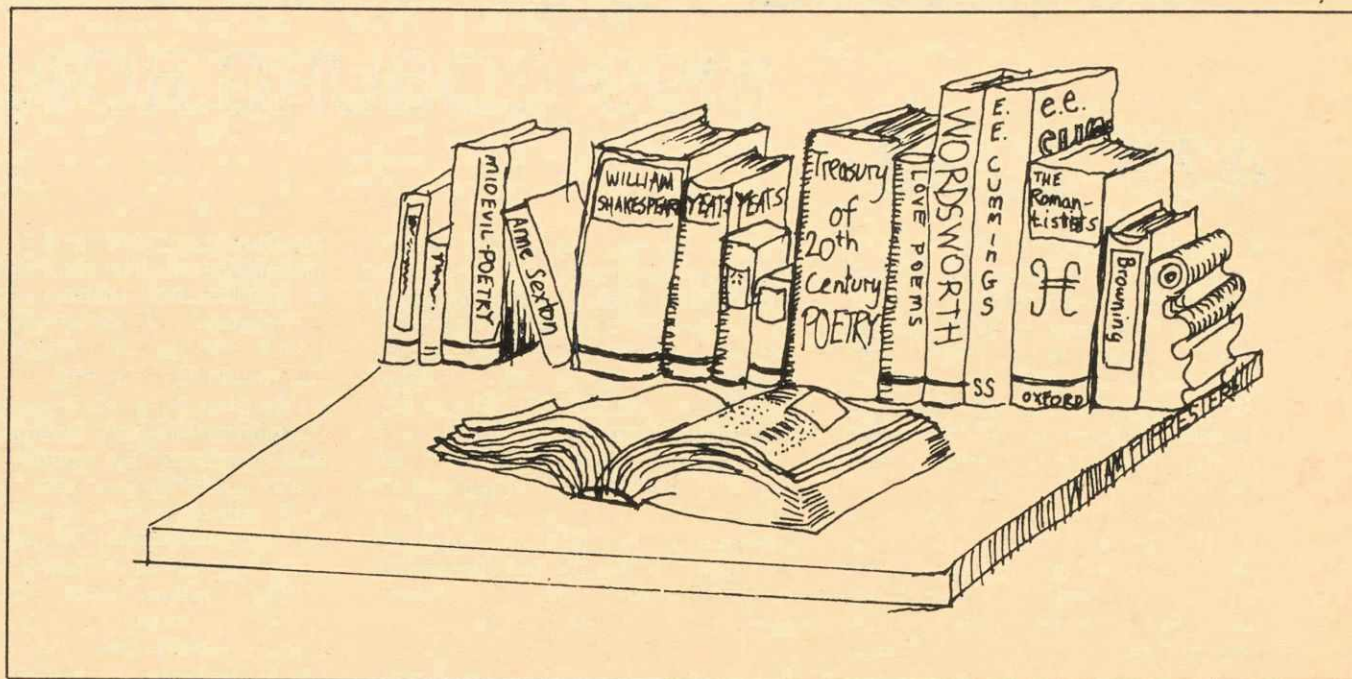 MIDEVIL-POETRY
Anne Sexton
WILLIAM
SHAKESPEARE
YEATS
YEATS
Treasury
of
20th
Century
POETRY
LOVE POEMS
WORDSWORTH
E. E. CUMMINGS
SS
e.e.
THE
Roman-
tistists
OXFORD
Browning
WILLIAM